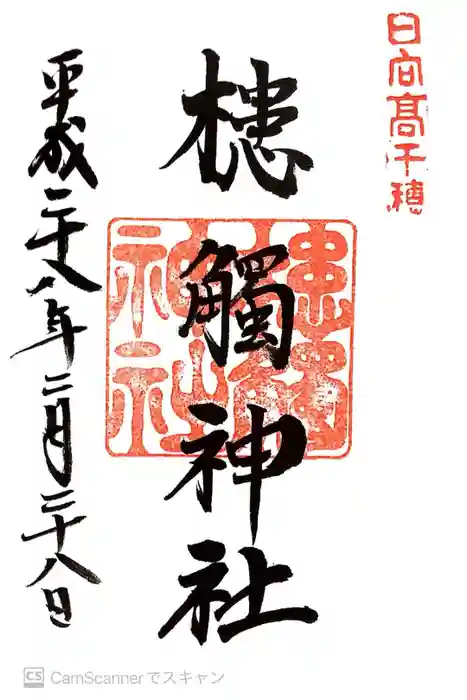 日向高千穂
槵觸神社
平成二十八年二月二十八日
CS CamScannerでスキャン